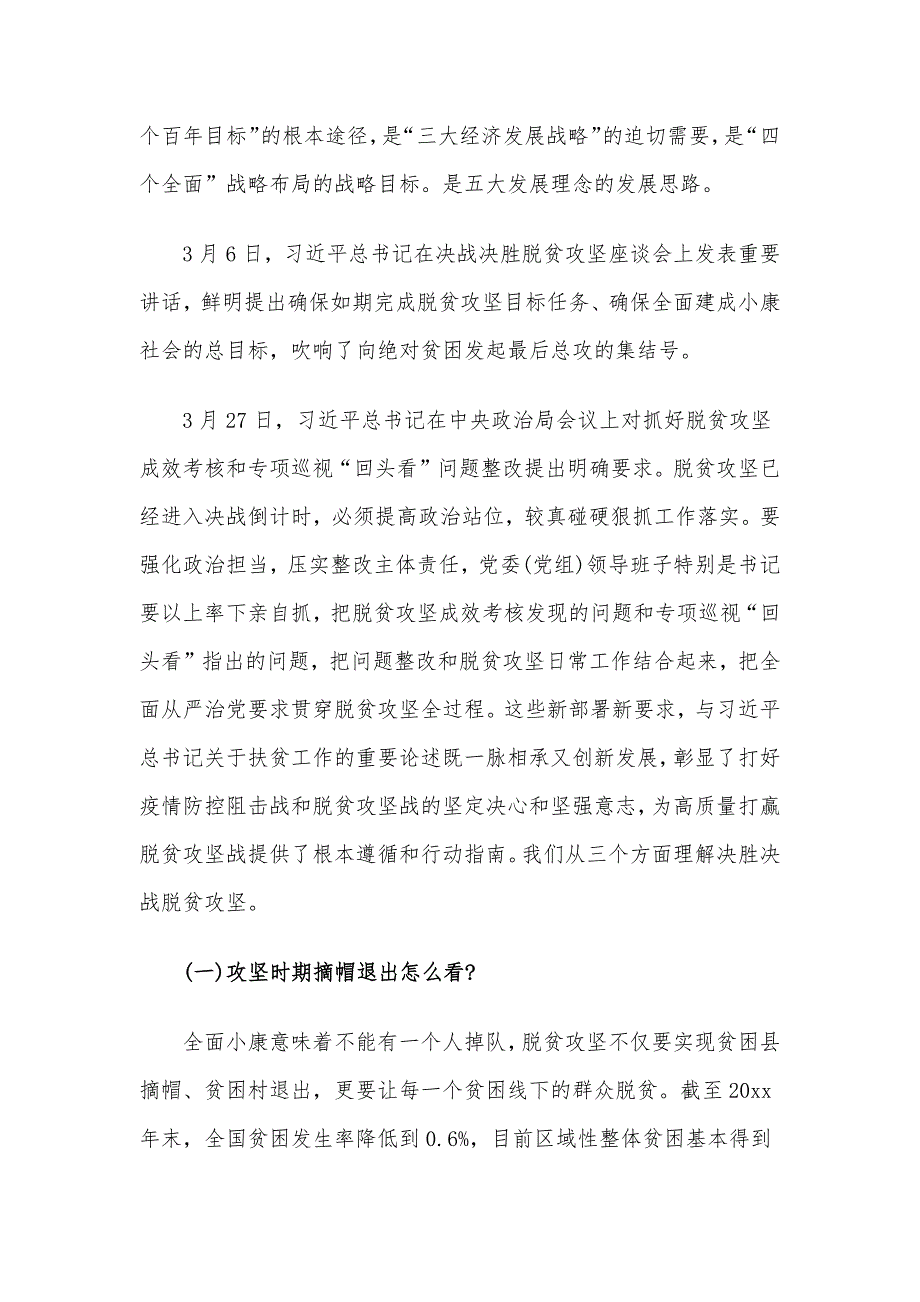 个百年目标”的根本途径,是“三大经济发展战略”的迫切需要,是“四
个全面”战略布局的战略目标。是五大发展理念的发展思路。
3月6日，习近平总书记在决战决胜脱贫攻坚座谈会上发表重要
讲话，鲜明提出确保如期完成脱贫攻坚目标任务、确保全面建成小康
社会的总目标，吹响了向绝对贫困发起最后总攻的集结号。
3月27日，习近平总书记在中央政治局会议上对抓好脱贫攻坚
成效考核和专项巡视“回头看”问题整改提出明确要求。脱贫攻坚已
经进入决战倒计时，必须提高政治站位，较真碰硬狠抓工作落实。要
强化政治担当，压实整改主体责任，党委(党组)领导班子特别是书记
要以上率下亲自抓，把脱贫攻坚成效考核发现的问题和专项巡视“回
头看”指出的问题，把问题整改和脱贫攻坚日常工作结合起来，把全
面从严治党要求贯穿脱贫攻坚全过程。这些新部署新要求，与习近平
总书记关于扶贫工作的重要论述既一脉相承又创新发展,彰显了打好
疫情防控阻击战和脱贫攻坚战的坚定决心和坚强意志，为高质量打赢
脱贫攻坚战提供了根本遵循和行动指南。我们从三个方面理解决胜决
战脱贫攻坚。
(一)攻坚时期摘帽退出怎么看?
全面小康意味着不能有一个人掉队,脱贫攻坚不仅要实现贫困县
摘帽、贫困村退出，更要让每一个贫困线下的群众脱贫。截至20xx
年末，全国贫困发生率降低到0.6%，目前区域性整体贫困基本得到